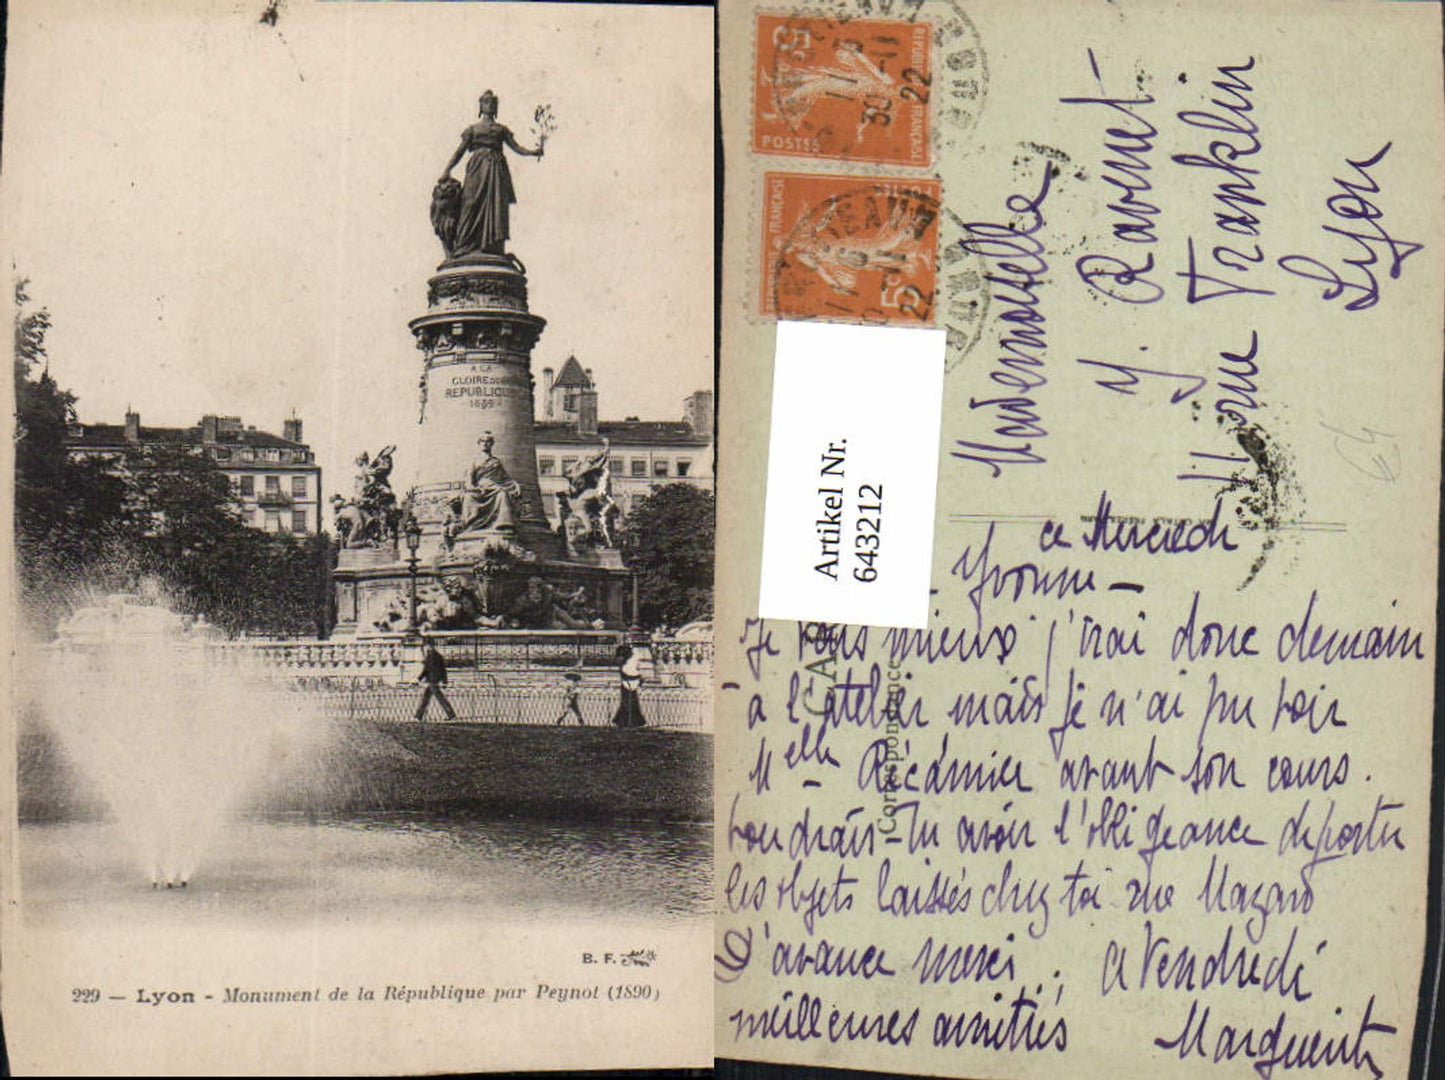 A LA
GLOIRE DE LA
REPUBLIQUE
1889
B. F.
229 — Lyon - Monument de la République par Peynot (1890)
REPUBLIQUE FRANÇAISE
POSTES
5c
30-11
22
FRANÇAISE
5c
22
Artikel Nr.
643212
Mademoiselle
Y. Ravnet
Franklin
Lyon
64
CAR
Correspondance
ce Mercredi
Yvonne -
Je vais mieux j'irai donc demain
à l'atelier mais je n'ai pu voir
Melle Récamier avant son cours.
Voudrais-tu avoir l'obligeance de porter
les objets laissés chez toi rue Mazard
D'avance merci. A Vendredi
meilleures amitiés Marguerite